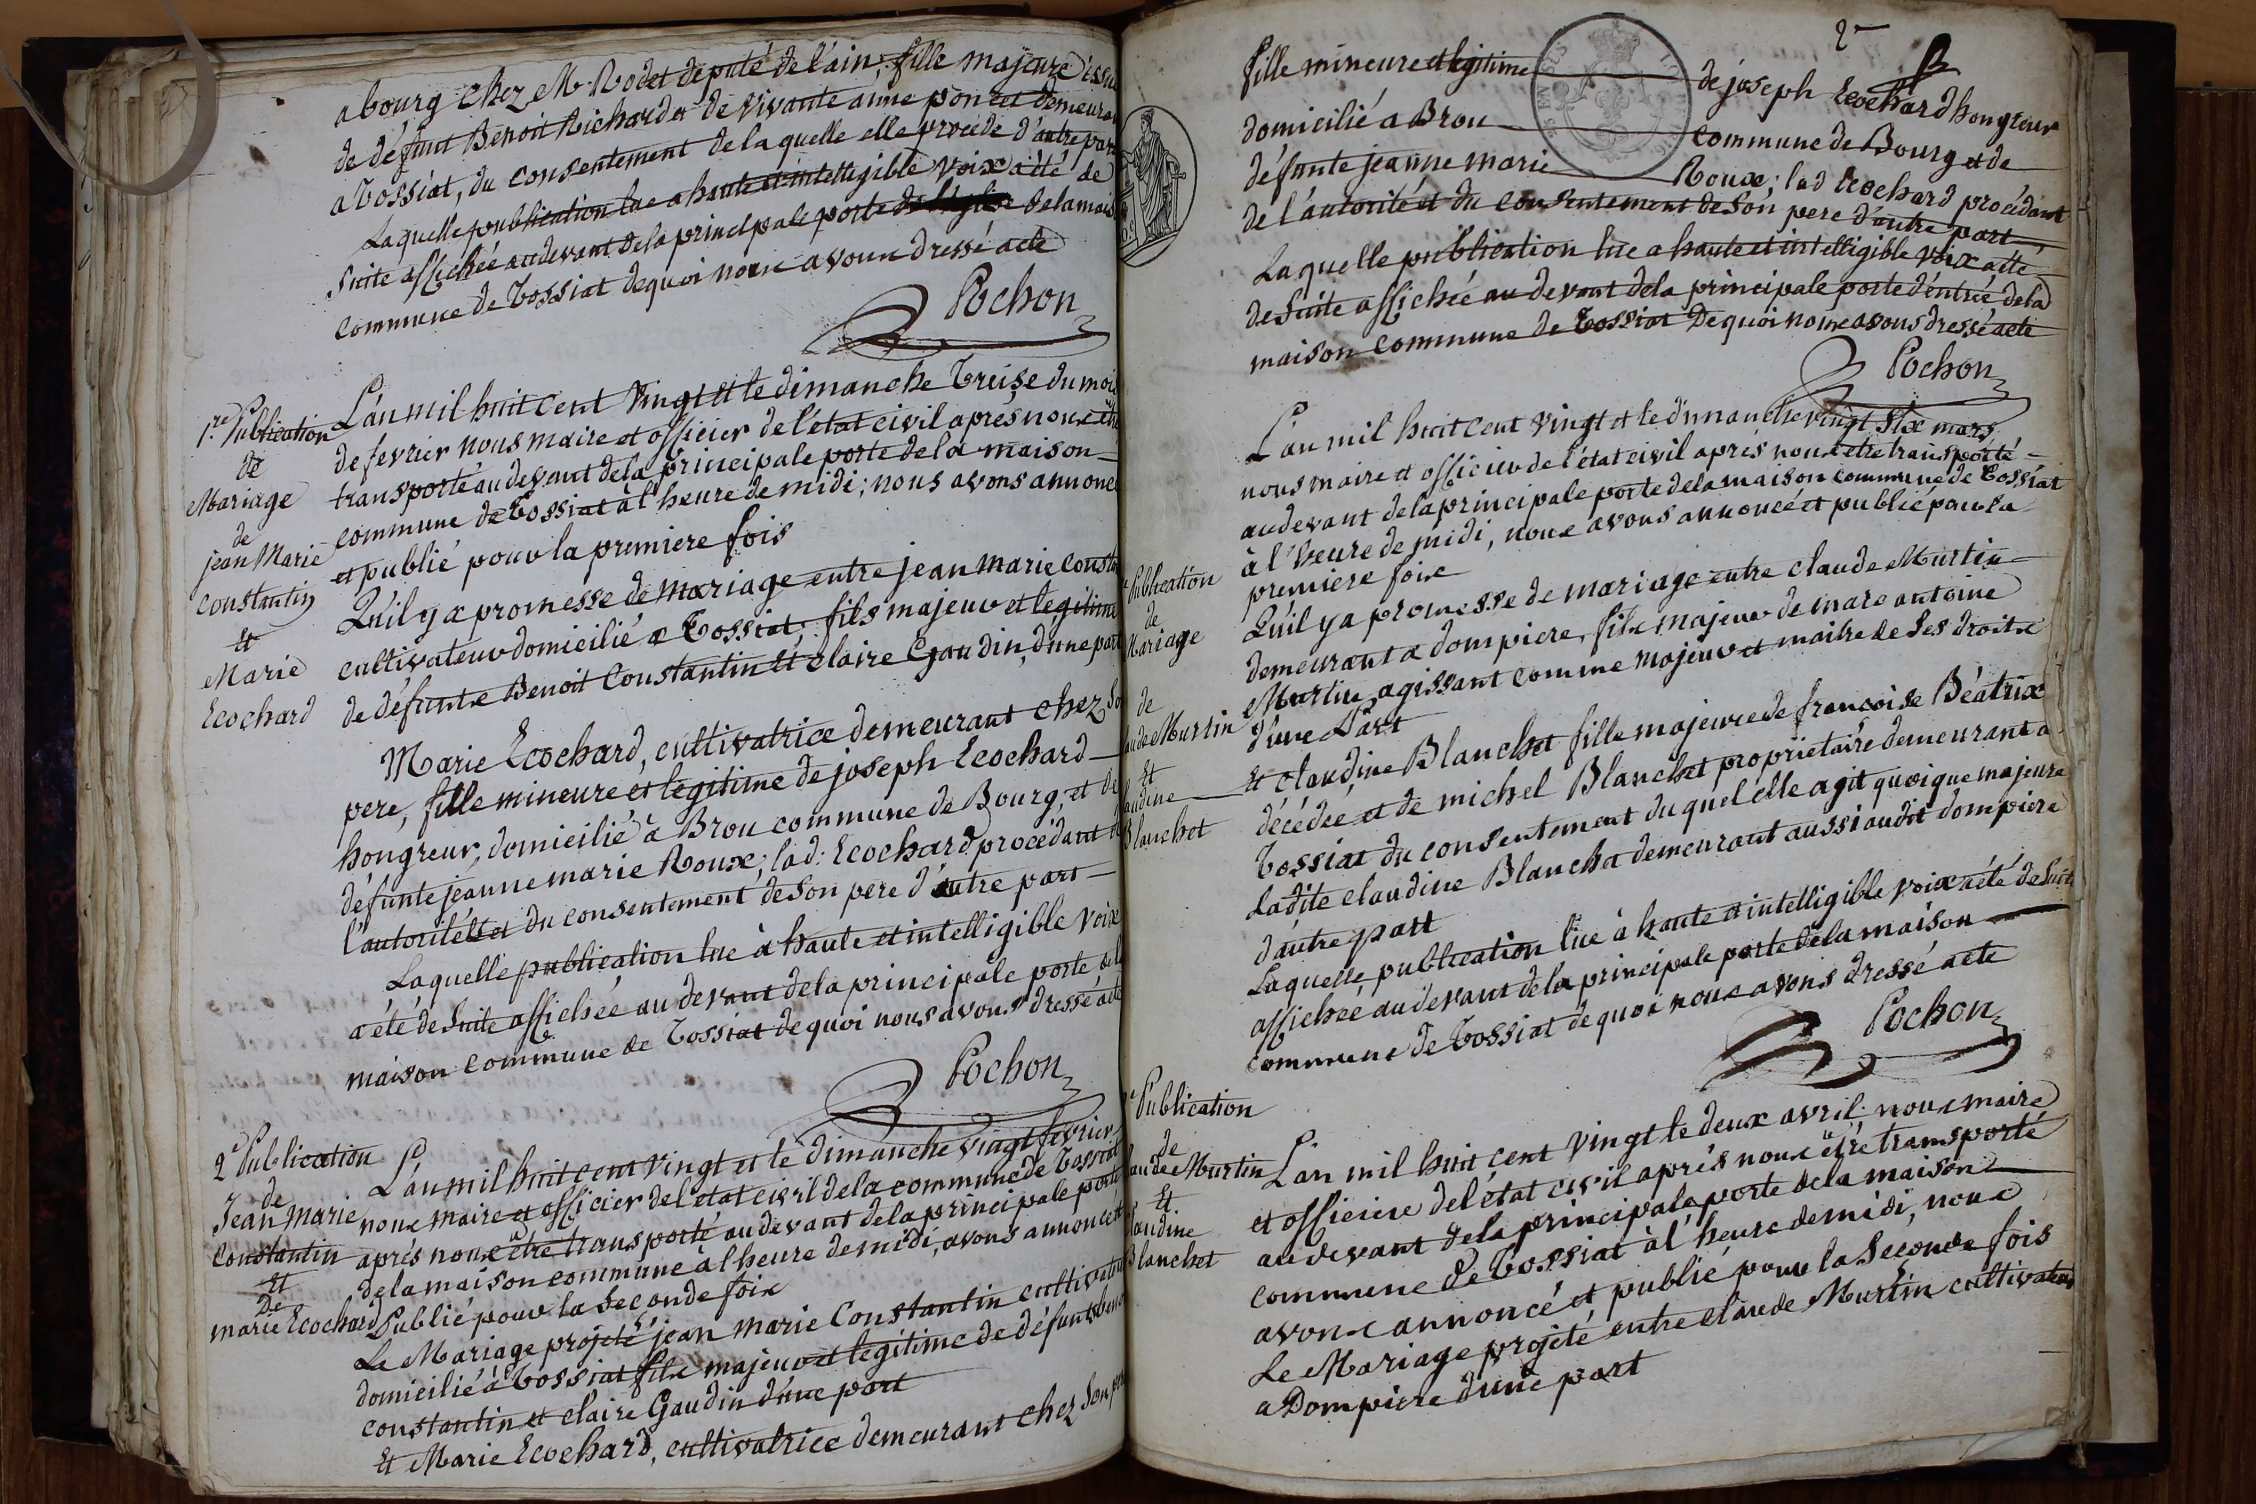 a bourg chez Mr. Rodet député de l'ain, fille majeure issu
de défunt Benoit Richard et de vivante anne poncet demeuran
a Tossiat, du consentement de laquelle elle procede d'autre part
Laquelle publication lue a haute et intelligible voix a été de
Suite affichée au devant de la principale porte de la mais
commune de Tossiat de quoi nous avons dressé acte
Pochon
1.re Publication
de
Mariage
de
jean Marie
constantin
Et
Marie
Ecochard
L'an mil huit cent Vingt et le dimanche Treise du mois
de fevrier nous maire et officier de l'état civil après nous être
transporté au devant de la principale porte de la maison
commune de Tossiat à l'heure de midi; nous avons annoncé
et publié pour la premiere fois
Qu'il y a promesse de mariage entre jean marie consta
cultivateur domicilié a Tossiat, fils majeur et legitime
de défunts Benoit Constantin Et claire Gaudin, d'une part
Marie Ecochard, cultivatrice demeurant chez so
pere, fille mineure et legitime de joseph Ecochard
hongreur, domicilié à Brou commune de Bourg, et de
défunte jeanne marie Roux; lad: Ecochard procédant de
l'autorité et du consentement de son pere d'autre part
Laquelle publication lue à haute et intelligible voix
a été de Suite affichée au devant de la principale porte de la
maison commune de Tossiat de quoi nous avons dressé acte
Pochon
2e Publication
de
Jean Marie
Constantin
Et
De
marie Ecochard
L'an mil huit cent vingt et le dimanche vingt fevrier
nous maire et officier de l'état civil de la commune de Tossiat
après nous être transporté au devant de la principale porte
de la maison commune à l'heure de midi, avons annoncé et
Publié pour la Seconde fois
Le Mariage projeté jean marie Constantin cultivateur
domicilié à Tossiat fils majeur et legitime de défunts benoi
constantin et claire Gaudin d'une part
Et Marie Ecochard, cultivatrice demeurant chez Son per
2
fille mineure et legitime de joseph Ecochard hongreur
domicilié a Brou commune de Bourg et de
défunte jeanne marie Roux; lad Ecochard procédant
de l'autorité et du consentement de Son pere d'autre part
Laquelle publication lue a haute et intelligible voix a été
de Suite affichée au devant de la principale porte d'entrée de la
maison commune de Tossiat De quoi nous avons dressé acte
Pochon
Publication
de
Mariage
de
aude Murtin
Et
audine
Blanchet
L'an mil huit cent vingt et le dimanche vingt Six mars,
nous maire et officier de l'état civil après nous être transporté
au devant de la principale porte de la maison commune de Tossiat
à l'heure de midi, nous avons annoncé et publié pour la
premiere fois
Qu'il y a promesse de mariage entre claude Murtin
demeurant a dompiere, fils majeur de marc antoine
Murtin, agissant comme majeur et maitre de Ses droits
d'une Part
Et claudine Blanchet fille majeure de francoise Béatrix
décédée et de michel Blanchet proprietaire demeurant a
Tossiat du consentement du quel elle agit quoique majeure
Ladite claudine Blanchet demeurant aussi audit dompiere
d'autre part
Laquelle publication lue à haute et intelligible voix a été de Suite
affichée au devant de la principale porte de la maison
commune de Tossiat de quoi nous avons dressé acte
Pochon
Publication
de
aude Murtin
Et
laudine
Blanchet
L'an mil huit cent vingt le deux avril nous maire
et officier de l'état civil après nous être transporté
au devant de la principale porte de la maison
commune de Tossiat à l'heure de midi, nous
avons annoncé et publié pour la Seconde fois
Le Mariage projeté entre claude Murtin cultivateur
a Dompiere d'une part